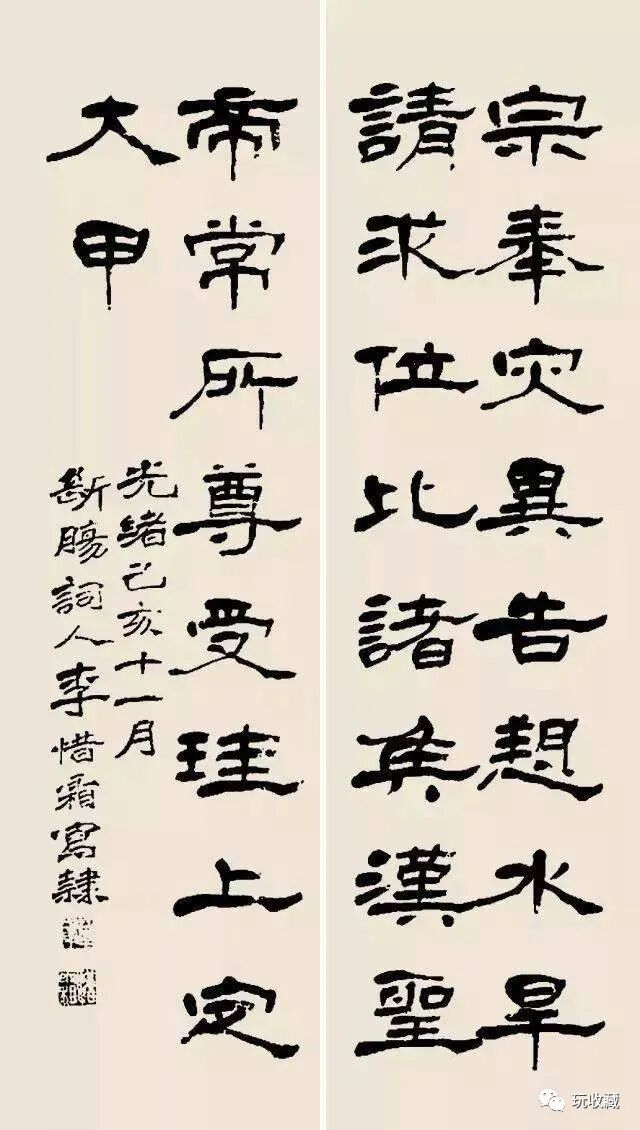 宗奉灾異告愬水旱
請求位比諸矦漢聖
帝常所尊受珪上定
大甲
光緒己亥十一月
斷腸詞人李惜霜寫隸
玩收藏